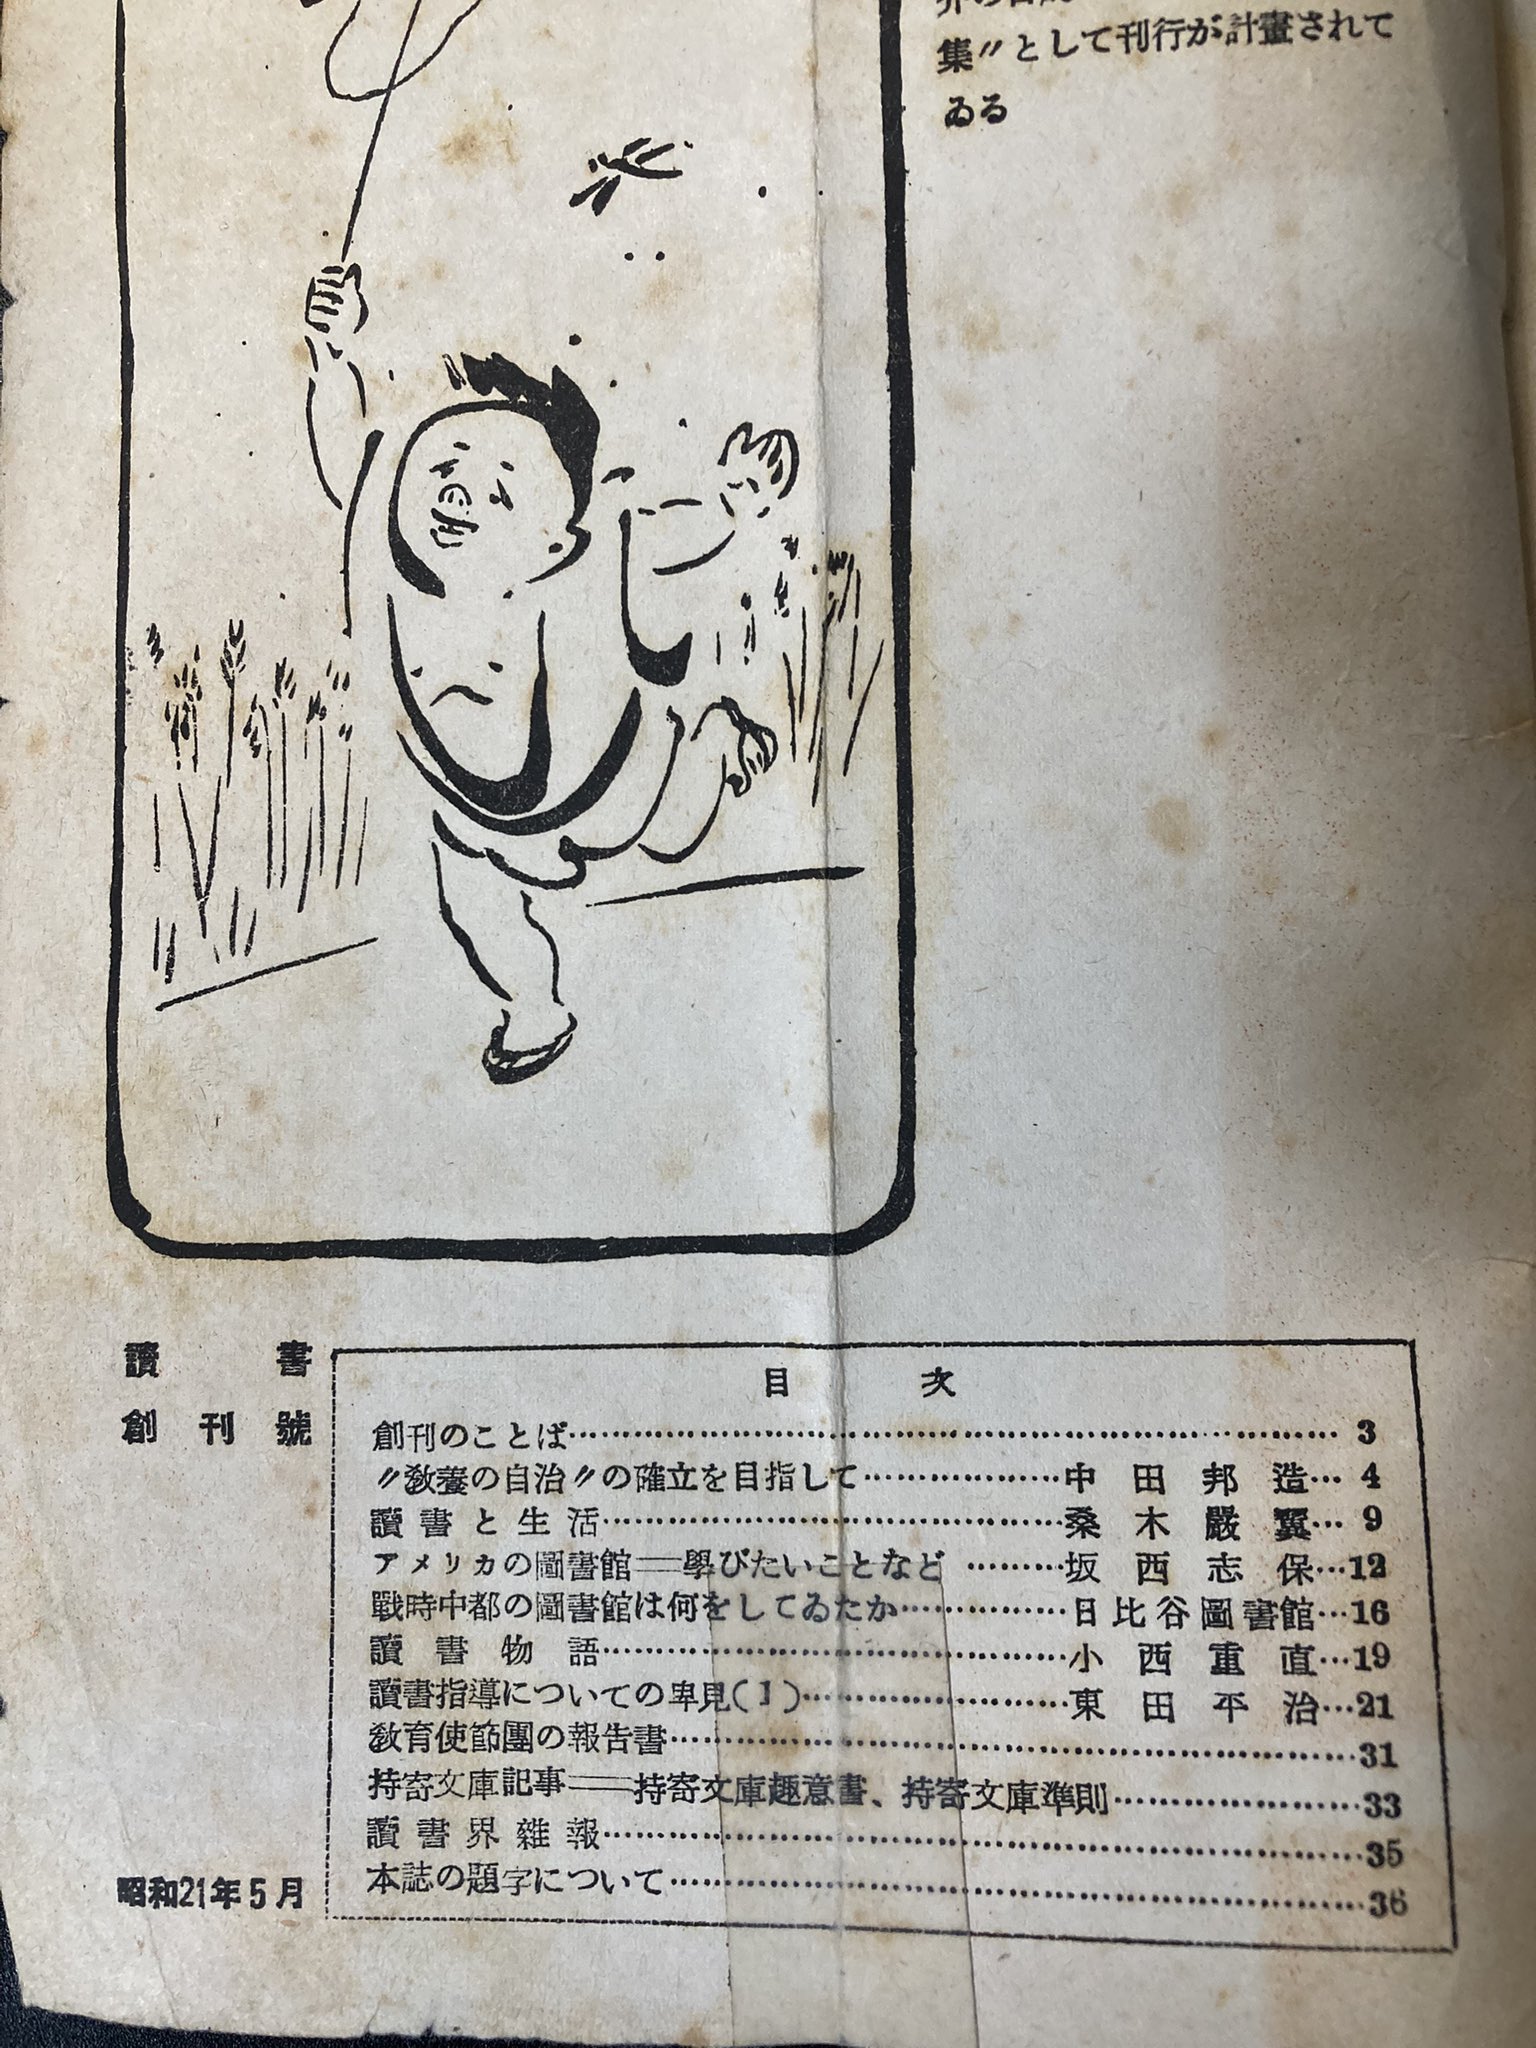 集〃として刊行が計畫されて
ゐる
讀書
創刊號
目次
創刊のことば……3
〃敎養の自治〃の確立を目指して……中田邦造…4
讀書と生活……桑木嚴翼…9
アメリカの圖書館――學びたいことなど……坂西志保…12
戰時中都の圖書館は何をしてゐたか……日比谷圖書館…16
讀書物語……小西重直…19
讀書指導についての卑見(1)……東田平治…21
敎育使節團の報告書……31
持寄文庫記事――持寄文庫趣意書、持寄文庫準則……33
讀書界雜報……35
本誌の題字について……36
昭和21年5月